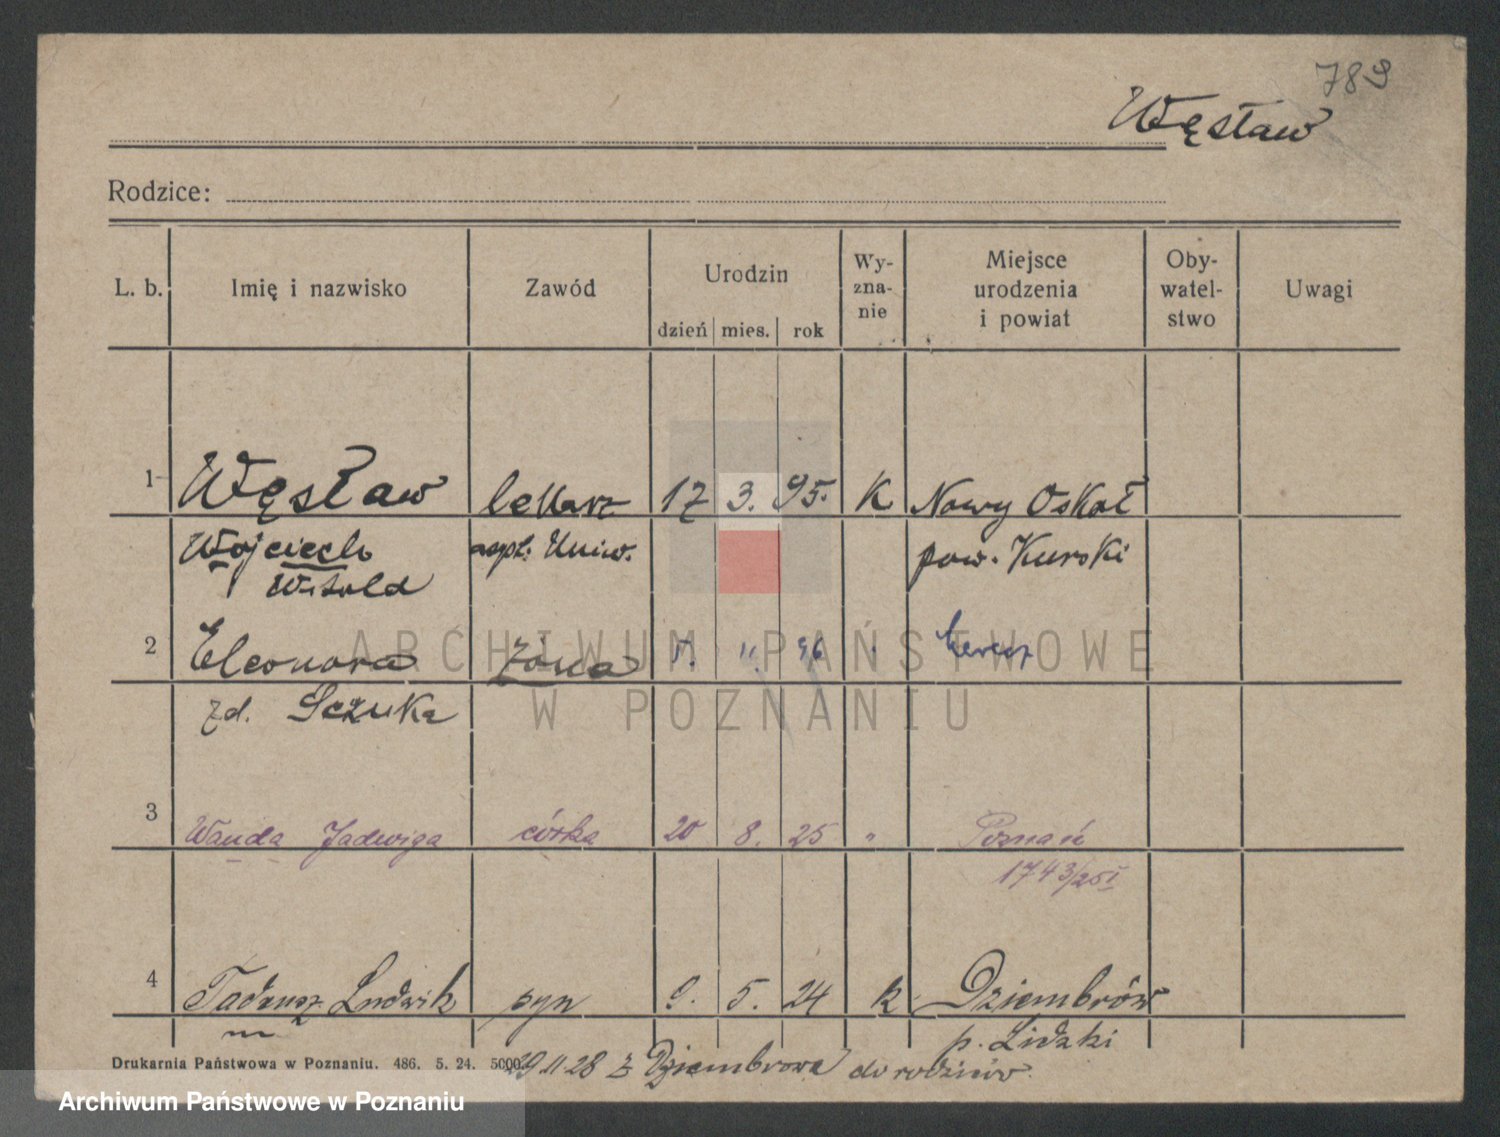 789
Węsław
Rodzice:
L. b. Imię i nazwisko Zawód Urodzin dzień mies. rok Wy-zna-nie Miejsce urodzenia i powiat Oby-watel-stwo Uwagi
1 Węsław lekarz 17 3. 95. K Nowy Oskoł
Wojciech aspt. Uniw. pow. Kurski
Witold
2 Eleonora żona 11. 96
zd. Sczuka
3 Wanda Jadwiga córka 20 8. 25 " Poznań
1743/25 I
4 Tadeusz Ludwik syn 9. 5. 24 k Dziembrów
p. Lidzki
Drukarnia Państwowa w Poznaniu. 486. 5. 24. 5000.
29.11.28 z Dziembrowa do rodziców.
ARCHIWUM PAŃSTWOWE
W POZNANIU
Archiwum Państwowe w Poznaniu